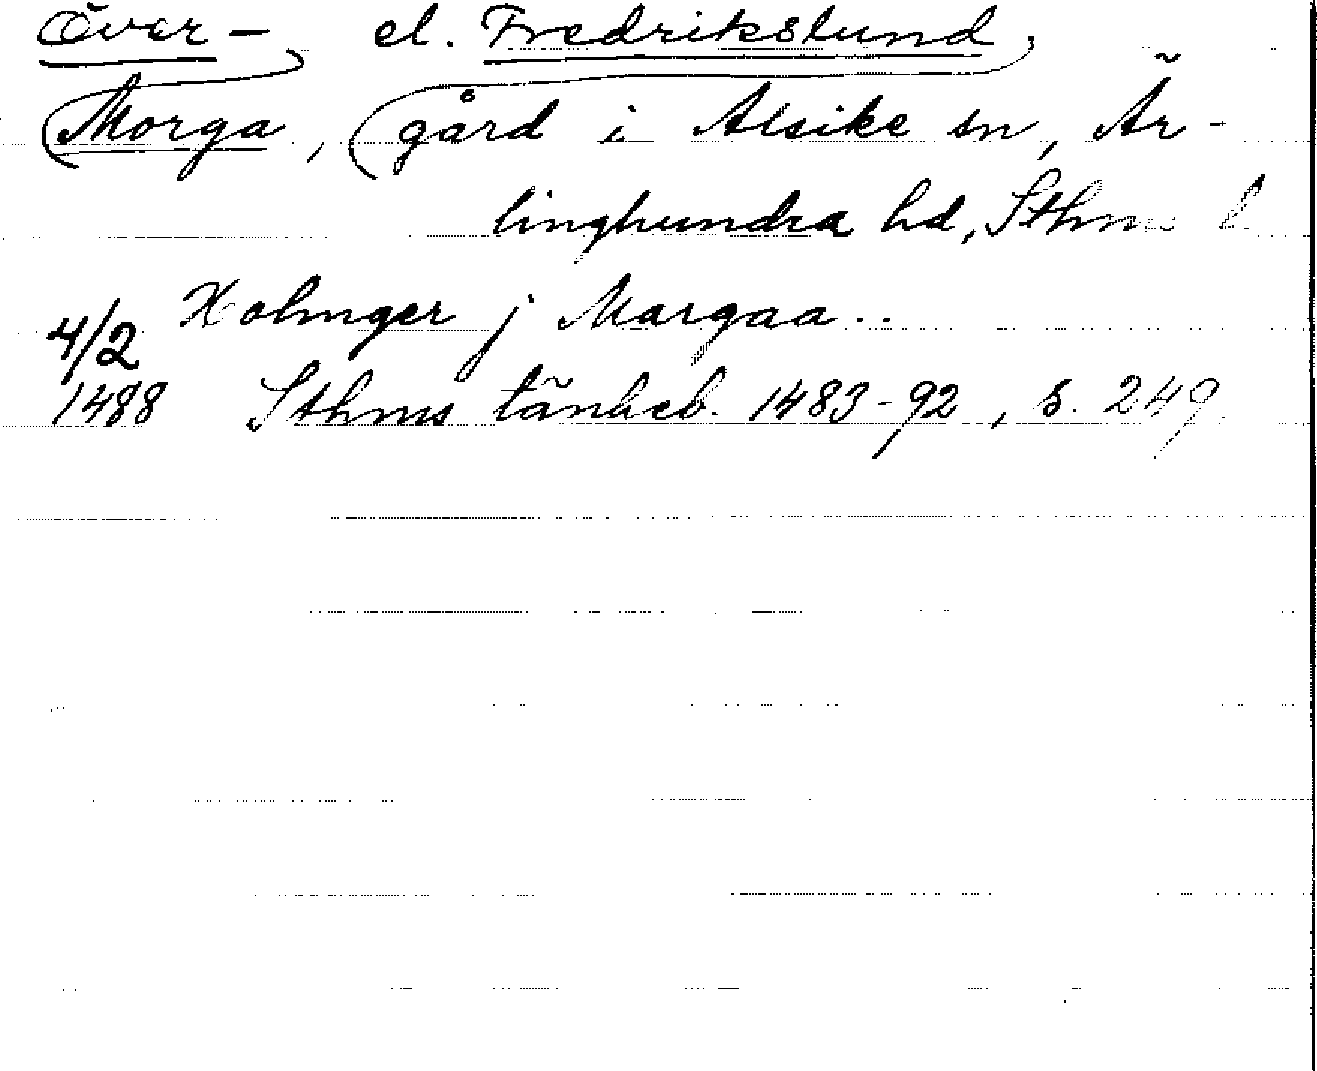 Över- el. Fredrikslund,
Morga, gård i Alsike sn, Är-
linghundra hd, Sthms l
Holmger j Margaa..
4/2
1488 Sthms tänkeb. 1483-92, s. 249.